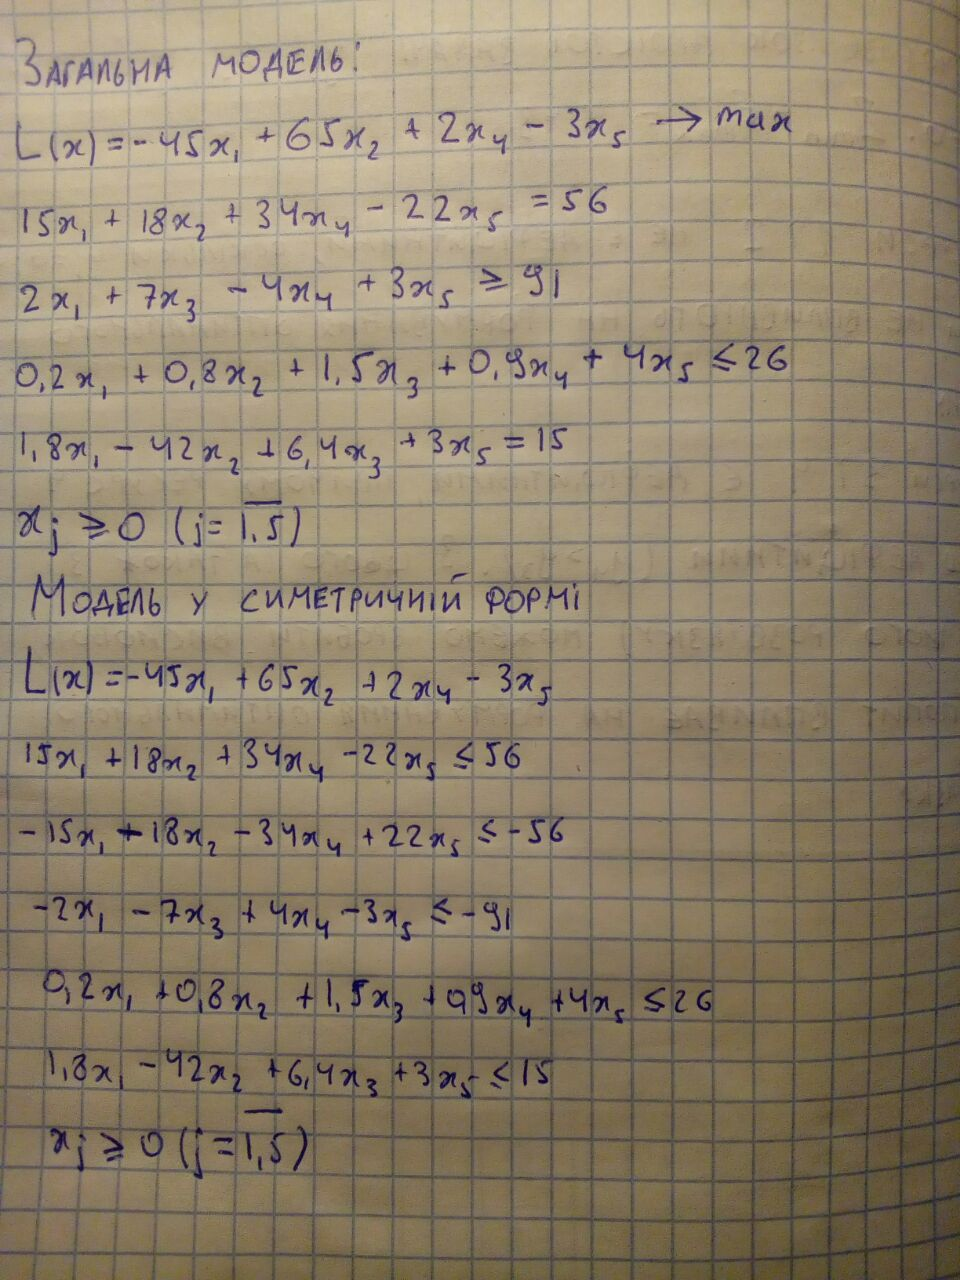 Загальна модель:
L(x) = -45x₁ + 65x₂ + 2x₄ - 3x₅ → max
15x₁ + 18x₂ + 34x₄ - 22x₅ = 56
2x₁ + 7x₃ - 4x₄ + 3x₅ ≥ 91
0,2x₁ + 0,8x₂ + 1,5x₃ + 0,9x₄ + 4x₅ ≤ 26
1,8x₁ - 42x₂ + 6,4x₃ + 3x₅ = 15
xⱼ ≥ 0 (j = 1,5)
Модель у симетричній формі
L(x) = -45x₁ + 65x₂ + 2x₄ - 3x₅
15x₁ + 18x₂ + 34x₄ - 22x₅ ≤ 56
-15x₁ - 18x₂ - 34x₄ + 22x₅ ≤ -56
-2x₁ - 7x₃ + 4x₄ - 3x₅ ≤ -91
0,2x₁ + 0,8x₂ + 1,5x₃ + 0,9x₄ + 4x₅ ≤ 26
1,8x₁ - 42x₂ + 6,4x₃ + 3x₅ ≤ 15
xⱼ ≥ 0 (j = 1,5)